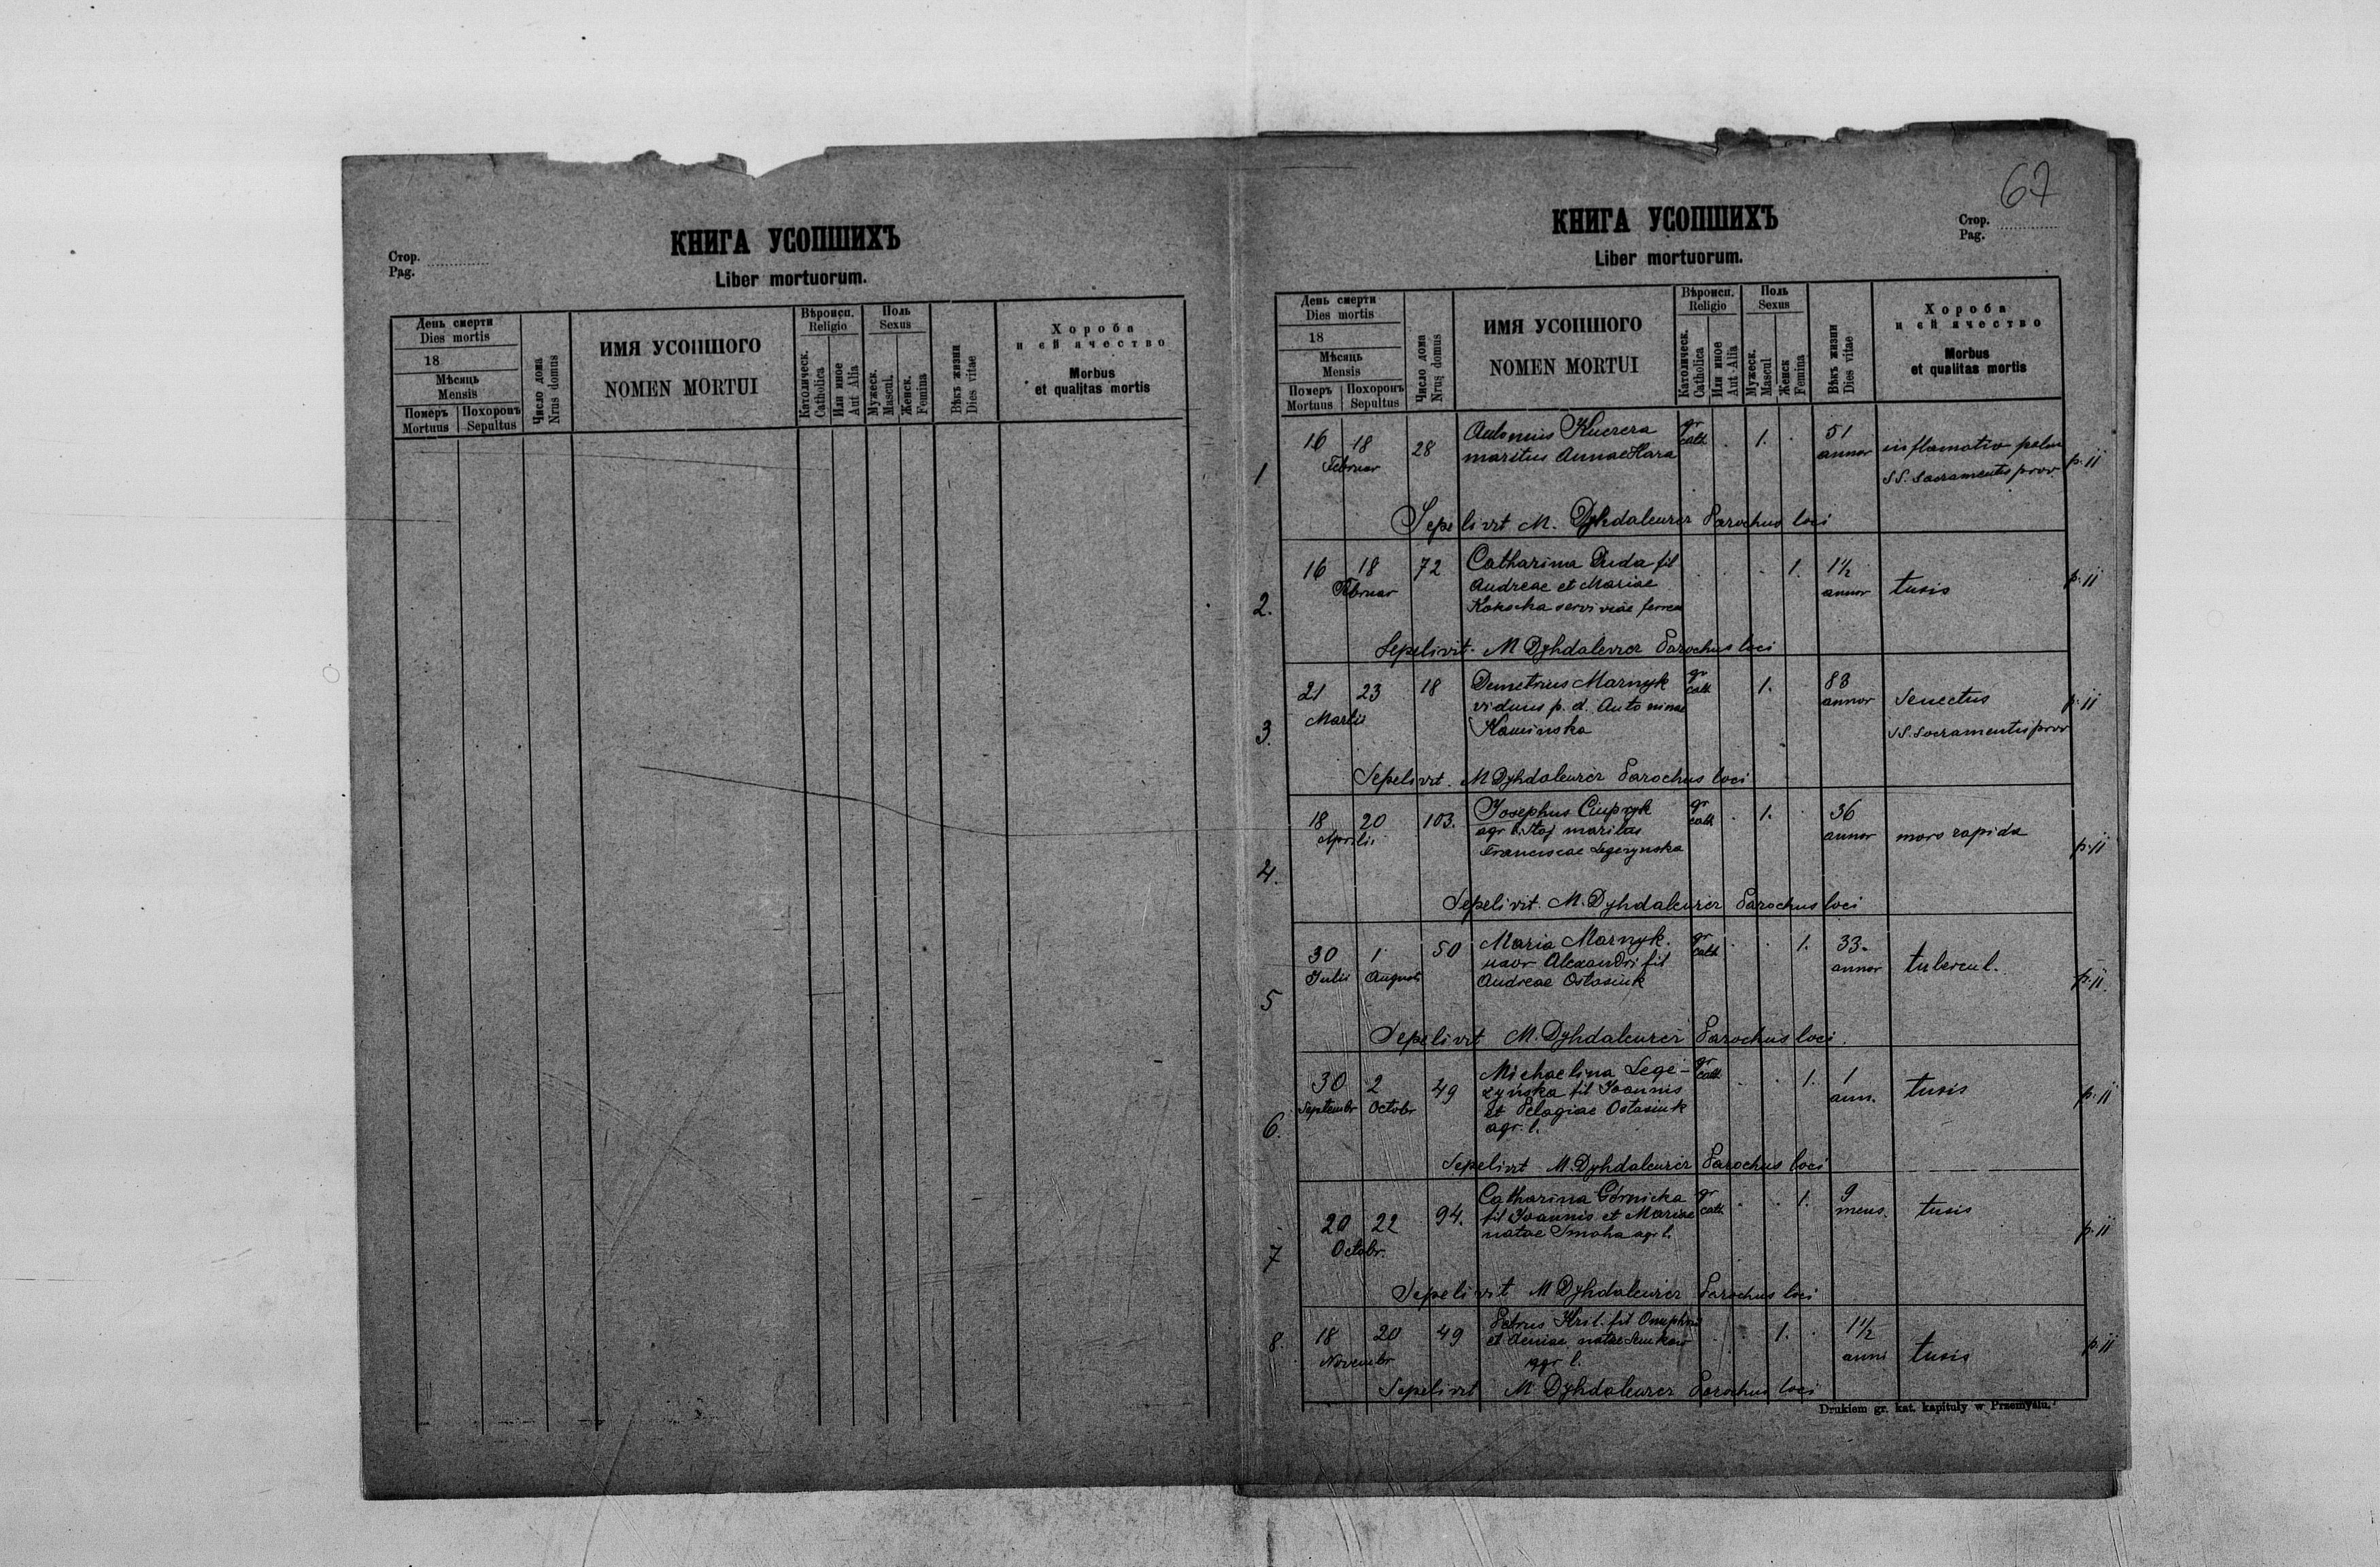 Стор.
Pag.
КНИГА УСОПШИХЪ
Liber mortuorum.
День смерти
Dies mortis
18
Мѣсяць
Mensis
Померъ Похоронъ
Mortuus Sepultus
Число дома
Nrus domus
ИМЯ УСОПШОГО
NOMEN MORTUI
Вѣроисп.
Religio
Католическ.
Catholica
Или иное
Aut Alia
Поль
Sexus
Мужеск.
Mascul.
Женск.
Femina
Вѣкъ жизни
Dies vitae
Хороба
и ей ячество
Morbus
et qualitas mortis
67
КНИГА УСОПШИХЪ
Стор.
Pag.
Liber mortuorum.
День смерти
Dies mortis
18
Мѣсяць
Mensis
Померъ Похоронъ
Mortuus Sepultus
Число дома
Nrus domus
ИМЯ УСОПШОГО
NOMEN MORTUI
Вѣроисп.
Religio
Католическ.
Catholica
Или иное
Aut Alia
Поль
Sexus
Мужеск.
Mascul
Женск
Femina
Вѣкъ жизни
Dies vitae
Хороба
и ей ячество
Morbus
et qualitas mortis
1 16 18 28 Antonius Kucera gr 1. 51
Februar maritus Annae Hara cath annor inflamatio pulm p. ii
SS. Sacramentis prov.
Sepelivit M. Dyhdalewicz Parochus loci
2. 16 18 72 Catharina Duda fil 1. 1½
Februar Andreae et Mariae annor tusis p. ii
servi viae ferreae
Sepelivit M Dyhdalewicz Parochus loci
3. 21 23 18 Demetrius Marnyk gr cath 1. 83
Martii viduus p. d. Antoninae annor senectus p. ii
Kaminska SS. Sacramentis prov
Sepelivit M Dyhdalewicz Parochus loci
4. 18 20 103. Josephus Ciupryk gr cath 1. 36
Aprilis agr l. maritus annor mors rapida p. ii
Franciscae Legezynska
Sepelivit M. Dyhdalewicz Parochus loci
5 30 1 50 Maria Marnyk gr cath 1. 33.
Julii Augusti uxor Alexandri fil annor tubercul. p. ii.
Andreae Ostasiuk
Sepelivit M. Dyhdalewicz Parochus loci
6. 30 2 49 Michaelina Lege- gr cath 1. 1
Septembr Octobr zyńska fil Joannis ann. tusis p. ii
et Pelagiae Ostasiuk
agr. l.
Sepelivit M. Dyhdalewicz Parochus loci
7 20 22 94. Catharina Górnicka gr cath 1. 9
Octobr. fil Joannis et Mariae mens. tusis p. ii
natae Smoha agr l.
Sepelivit M Dyhdalewicz Parochus loci
8. 18 20 49 Petrus Kril. fil Onuphrii 1. 1½
Novembr et natae agr l. anni tusis p. ii
Sepelivit M Dyhdalewicz Parochus loci
Drukiem gr. kat. kapituły w Przemyślu.